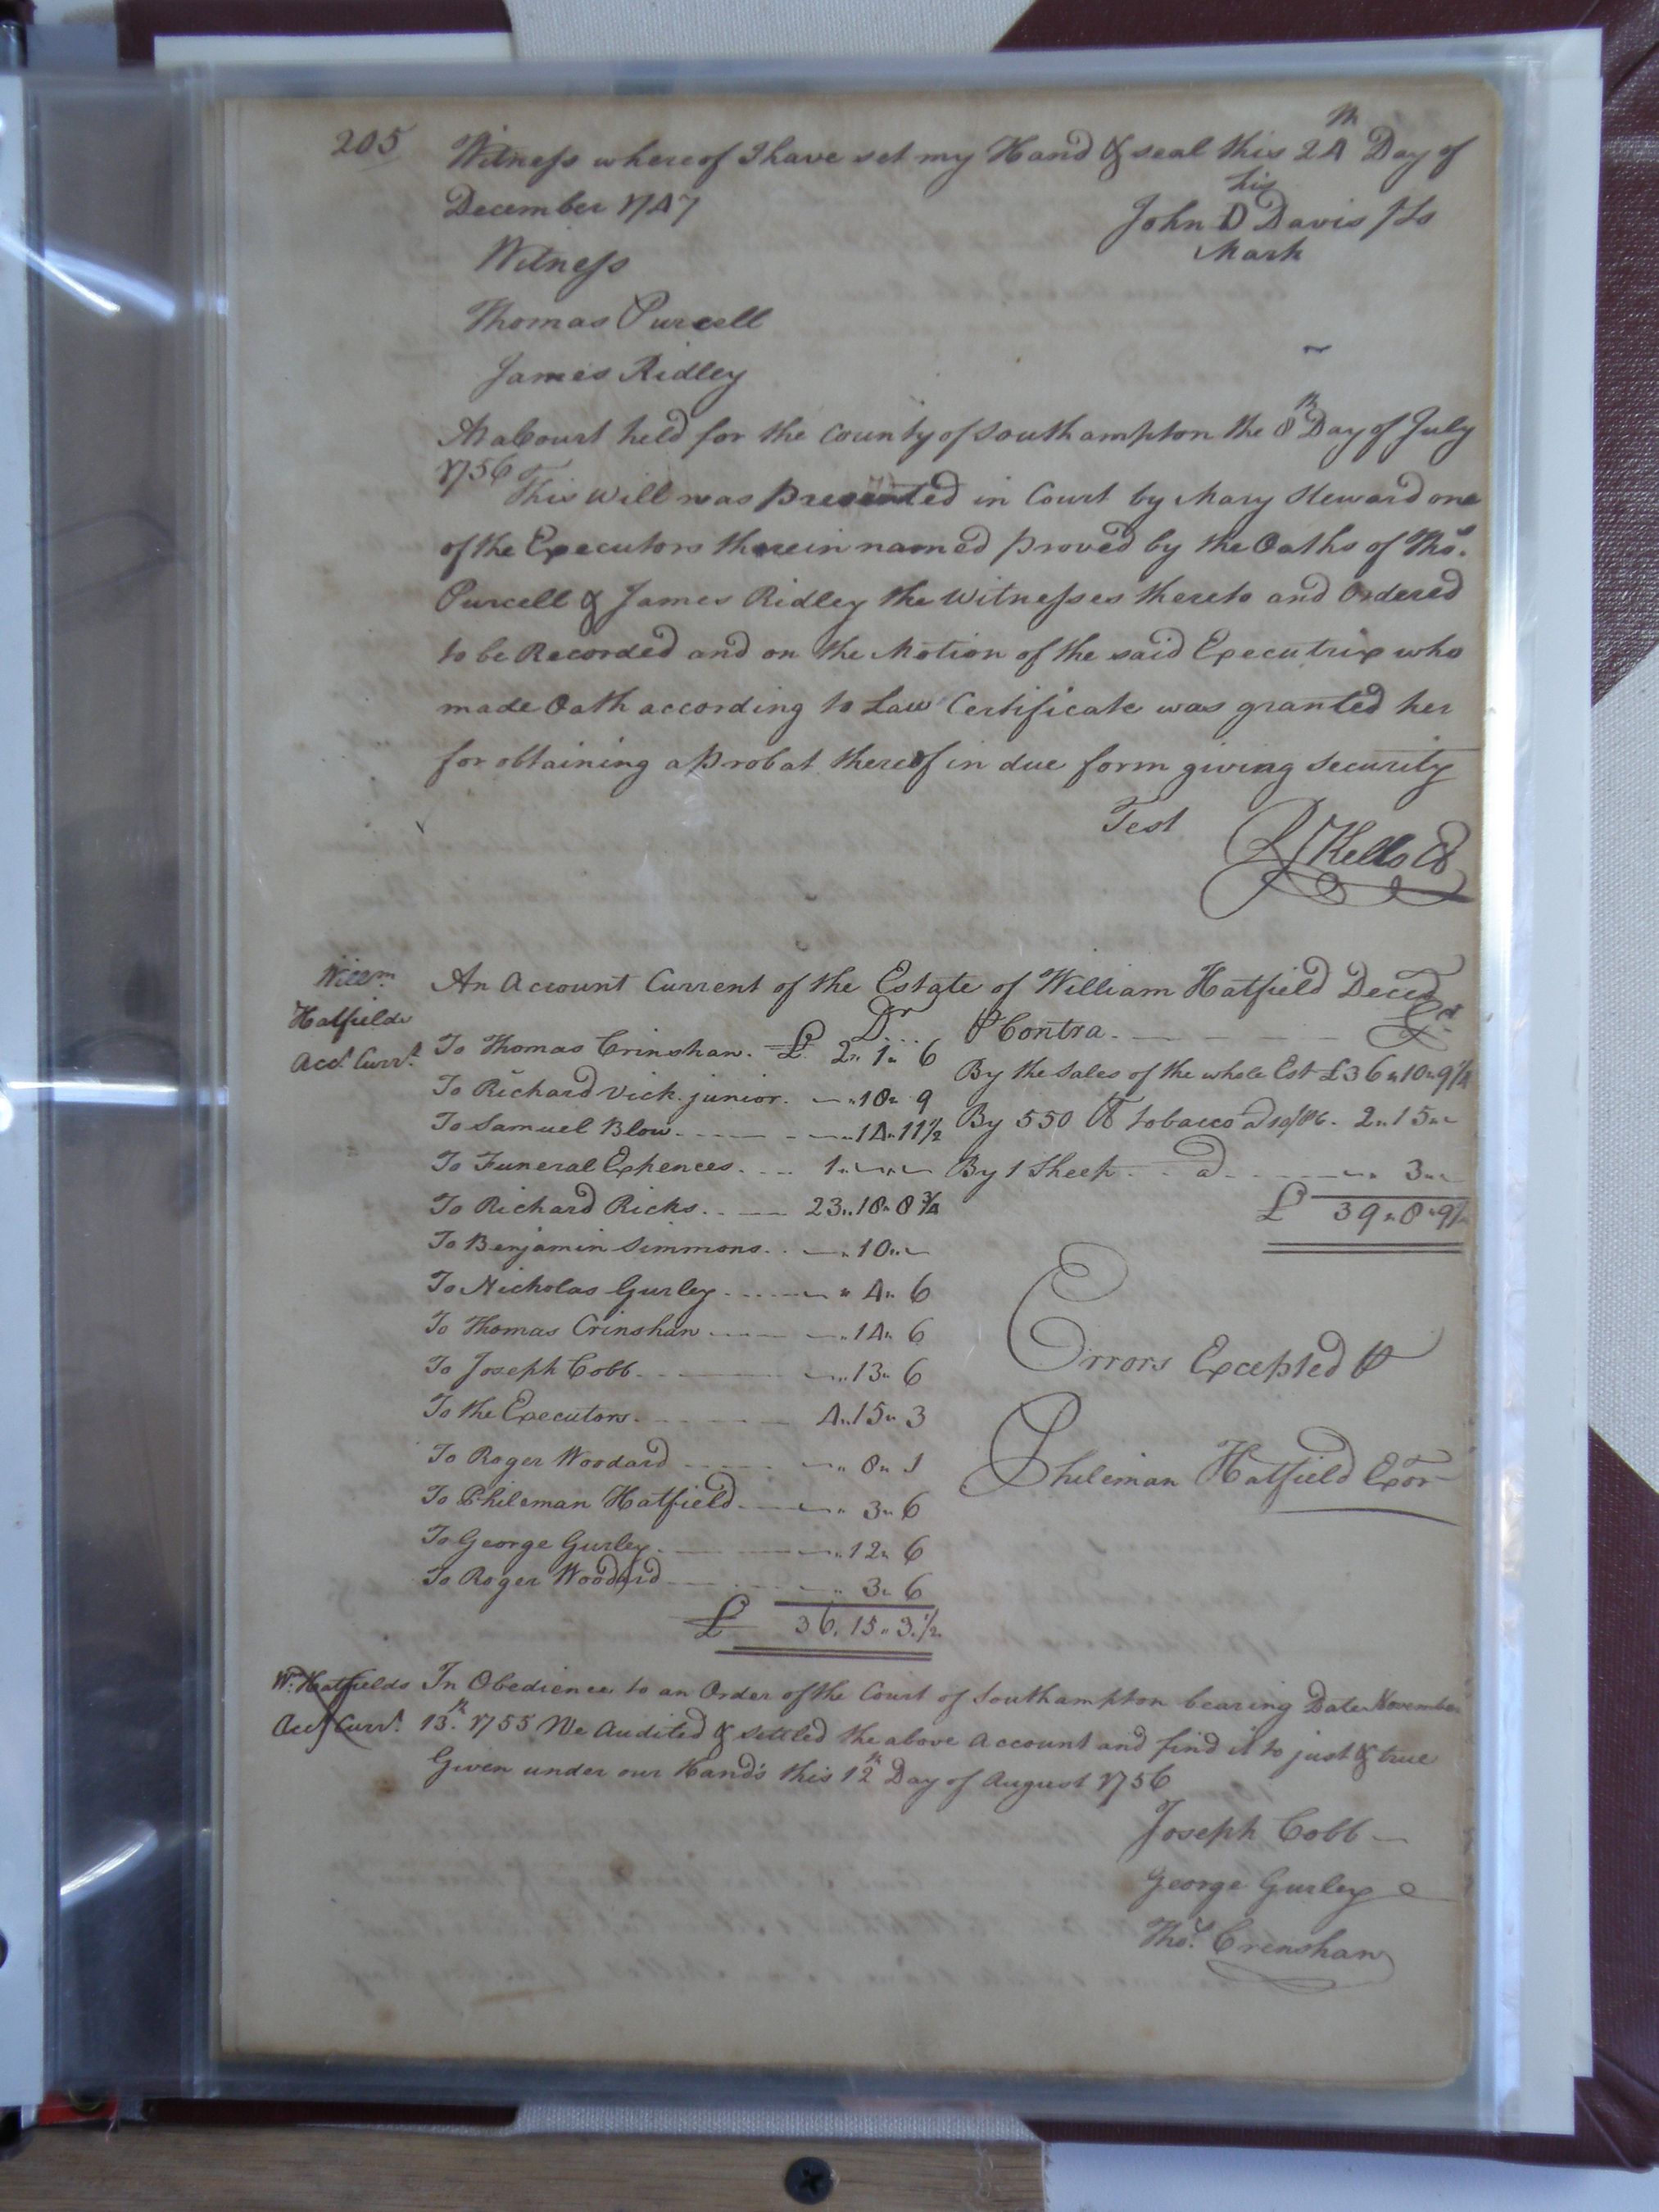 205
Witness whereof I have set my Hand & seal this 24th Day of
December 1747
his
John D Davis Ls
Mark
Witness
Thomas Purcell
James Ridley
At a Court held for the County of Southampton the 8th Day of July
1756
This Will was presented in Court by Mary Steward one
of the Executors therein named proved by the Oaths of Thos.
Purcell & James Ridley the Witnesses thereto and Ordered
to be Recorded and on the Motion of the said Executrix who
made Oath according to Law Certificate was granted her
for obtaining a probat thereof in due form giving security
Test
R Kello Cl
Willm.
Hatfields
Acct. Curr.t
An Account Current of the Estate of William Hatfield Decd
Dr
To Thomas Crinshaw. £ 2" 1" 6
To Richard Vick junior. — "18" 9
To Samuel Blow. — "14" 11 1/2
To Funeral Expences. 1" — " —
To Richard Ricks. 23" 18" 8 3/4
To Benjamin Simmons. — "10" —
To Nicholas Gurley — " 4" 6
To Thomas Crinshaw — "14" 6
To Joseph Cobb. — "13" 6
To the Executors. 4" 15" 3
To Roger Woodard — " 8" 1
To Phileman Hatfield — " 3" 6
To George Gurley. — "12" 6
To Roger Woodard — " 3" 6
£ 36. 15" 3. 1/2
P Contra. Cr
By the Sales of the whole Est £36"10"9 1/4
By 550 lb tobacco a 10/ P C. 2"15"—
By 1 Sheep a — " 3"—
£ 39" 8" 9 1/4
Errors Excepted P
Phileman Hatfield Exor
Wm. Hatfields
Acct Curr.t
In Obedience to an Order of the Court of Southampton bearing Date November
13th. 1755 We Audited & settled the above Account and find it to just & true
Given under our Hand's this 12th Day of August 1756
Joseph Cobb
George Gurley
Thos. Crenshaw